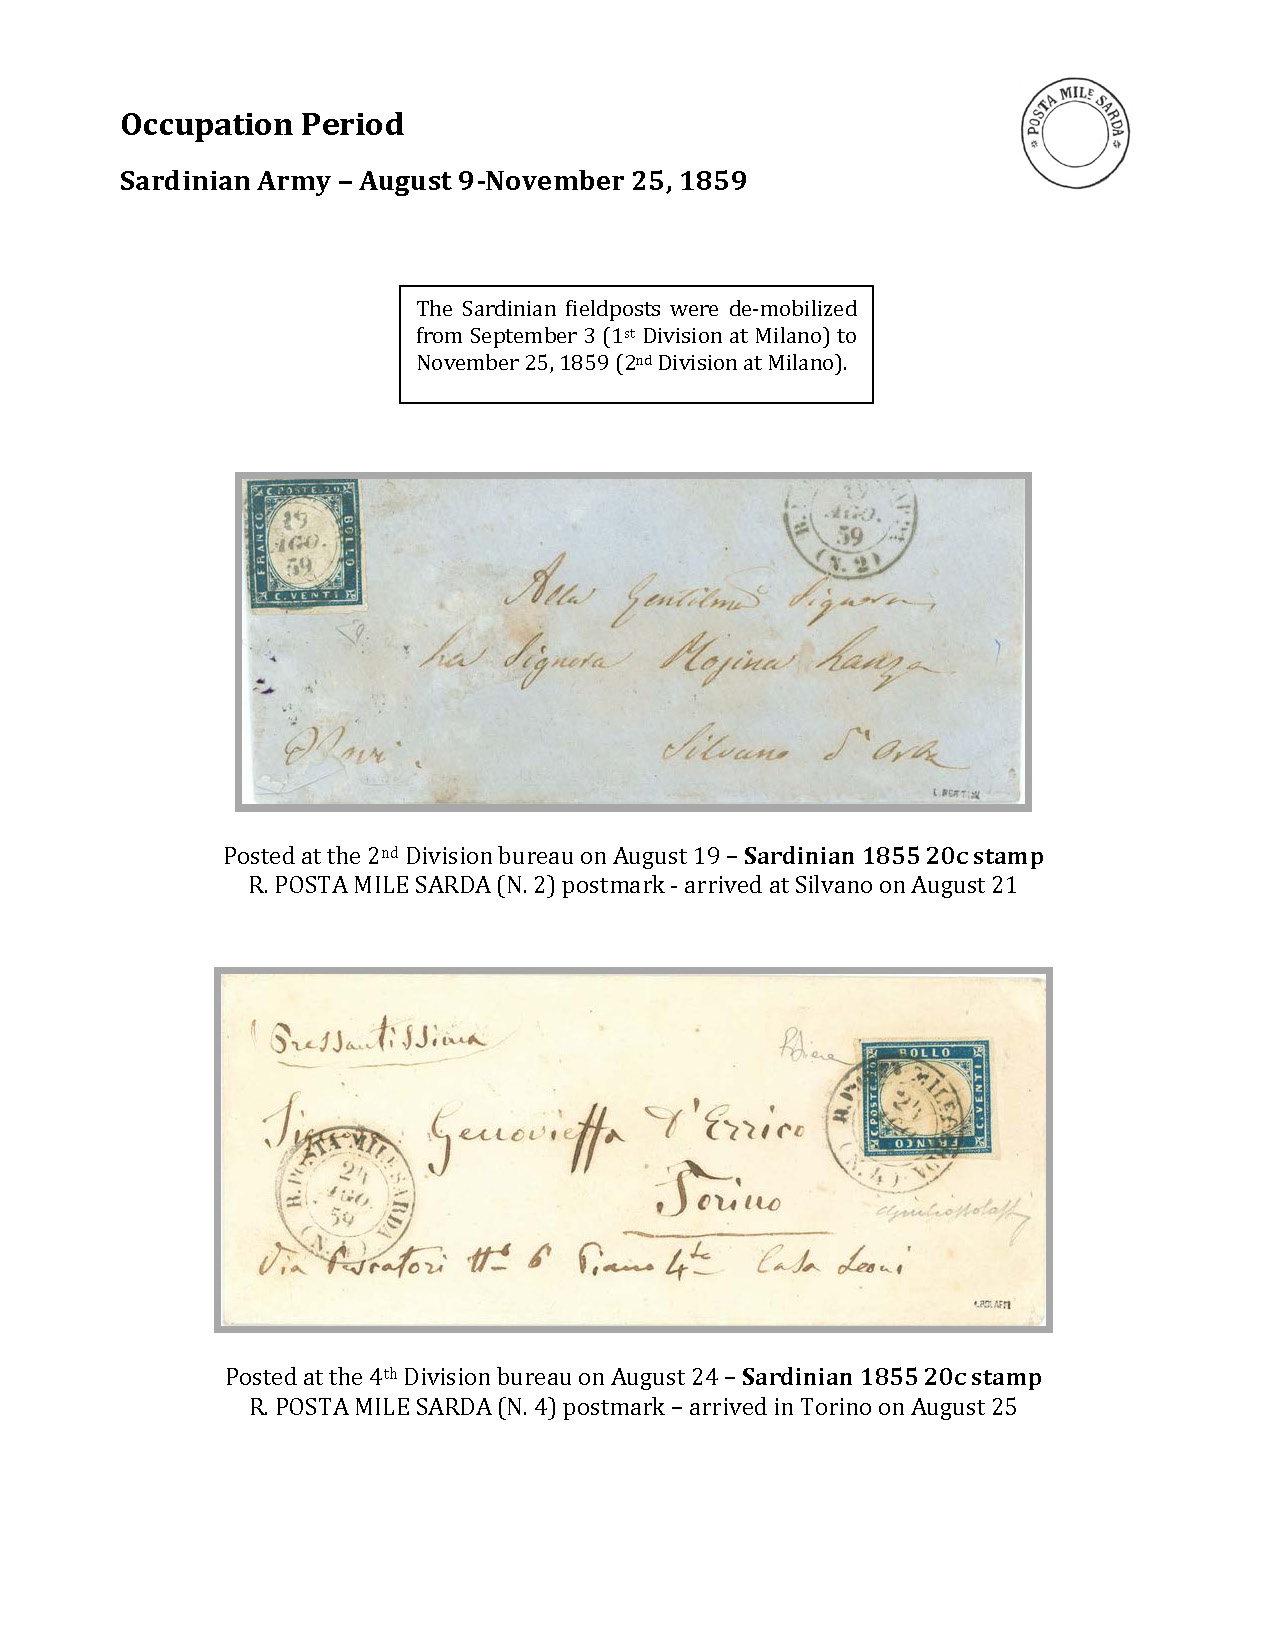 Occupation Period
* POSTA MILE SARDA *
Sardinian Army – August 9-November 25, 1859
The Sardinian fieldposts were de-mobilized
from September 3 (1st Division at Milano) to
November 25, 1859 (2nd Division at Milano).
C. POSTE. 20
FRANCO
BOLLO
C. VENTI
19
AGO.
59
19
AGO.
59
(N. 2)
Alla Gentilma Signora
La Signora Rosina Lanza
Novi
Silvano d'Orba
Posted at the 2nd Division bureau on August 19 – Sardinian 1855 20c stamp
R. POSTA MILE SARDA (N. 2) postmark - arrived at Silvano on August 21
Pressantissima
BOLLO
C. POSTE. 20
C. VENTI
FRANCO
R. POSTA MILE SARDA
24
(N. 4)
Genovieffa D'Errico
Torino
R. POSTA MILE SARDA
24
AGO.
59
(N. 4)
Via Pescatori No 6 Piano 4to Casa Leoni
Posted at the 4th Division bureau on August 24 – Sardinian 1855 20c stamp
R. POSTA MILE SARDA (N. 4) postmark – arrived in Torino on August 25